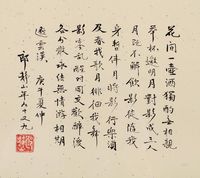 花間一壺酒獨酌無相親
舉杯邀明月對影成三人
月既不解飲影徒隨我
身暫伴月將影行樂須
及春我歌月徘徊我舞
影零亂醒時同交歡醉後
各分散永結無情遊相期
邈雲漢 庚午夏仲
郎靜山年九十又九